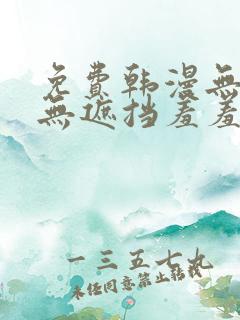 免费韩漫無
無遮挡羞羞
一三五七九
未经同意禁止转载